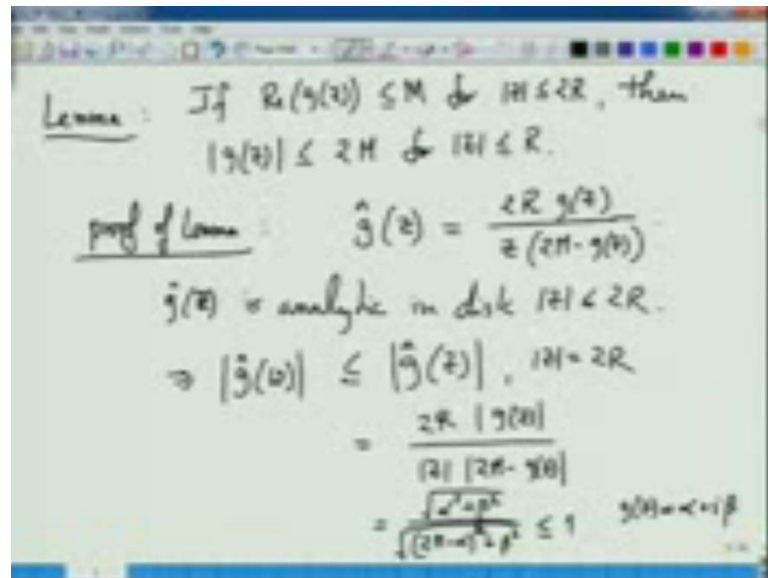 Lemma : If Re(g(z)) ≤ M for |z| ≤ 2R, then
|g(z)| ≤ 2M for |z| ≤ R.
proof of Lemma : ĝ(z) = 2R g(z) / z (2M - g(z))
ĝ(z) is analytic in disk |z| ≤ 2R.
⇒ |ĝ(w)| ≤ |ĝ(z)|, |z| = 2R
= 2R |g(z)| / |z| |2M - g(z)|
= √(α² + β²) / √((2M - α)² + β²) ≤ 1 g(z) = α + iβ